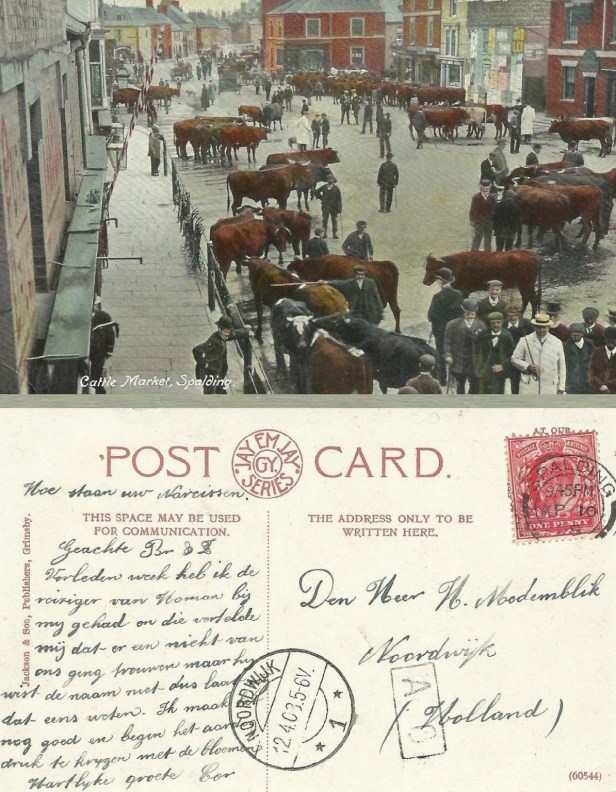 Cattle Market, Spalding.
POST CARD.
JAY EM JAY
GY.
SERIES
AT OUR
SPALDING
945PM
AP 10
ONE PENNY
Hoe staan uw Narcissen.
THIS SPACE MAY BE USED
FOR COMMUNICATION.
THE ADDRESS ONLY TO BE
WRITTEN HERE.
Jackson & Son, Publishers, Grimsby.
Geachte Br & Z
Verleden week heb ik de
reiziger van Homan bij
my gehad en die vertelde
mij dat er een nicht van
ons ging trouwen maar hij
wist de naam niet dus laat
dat eens weten. Ik maak
nog goed en begin het aardig
druk te krygen met de bloemen
Hartlyke groete Cor
Den Heer H. Medemblik
Noordwijk
(Holland)
NOORDWIJK
12.4.03.5-6V.
1
(60544)